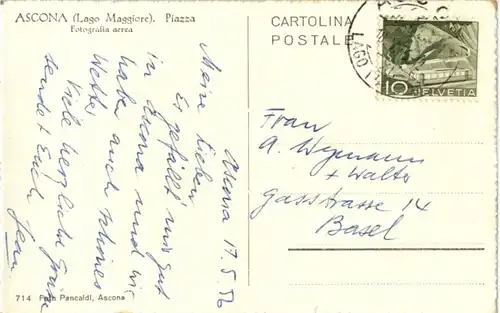 ASCONA (Lago Maggiore). Piazza
Fotografia aerea
CARTOLINA
POSTALE
LAGO
10 HELVETIA
Ascona 17.5.52
Meine Lieben
Es gefällt mir gut
in Ascona und wir
haben auch schönes
Wetter
Viele herzliche Grüsse
sendet Euch
Jean
Frau
A. Wymann
+ Walter
Gasstrasse 14
Basel
714 Foto Pancaldi, Ascona